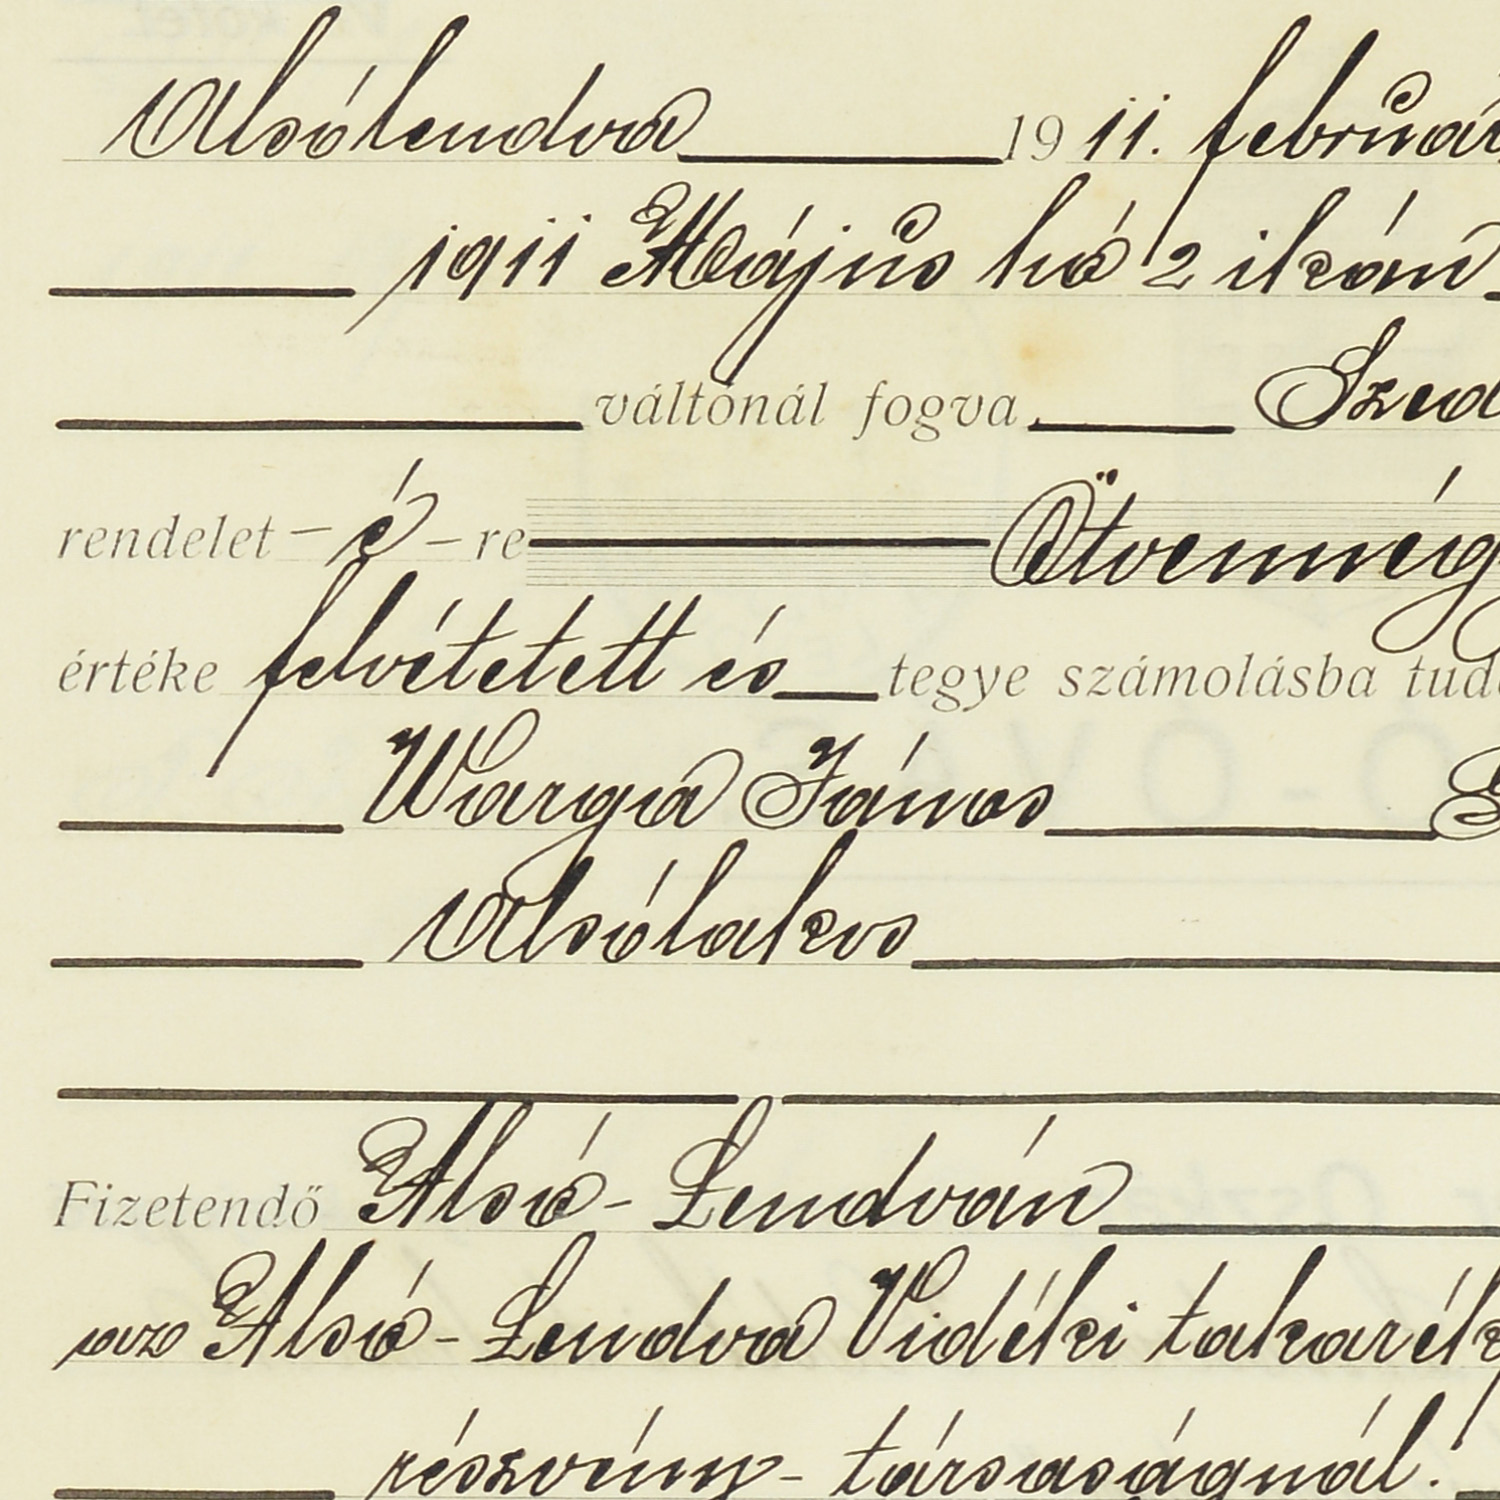 Alsólendva 1911. február
1911 Május hó 2 ikán
váltónál fogva Szed
rendelet-é-re Ötvennég
értéke felvétetett és tegye számolásba tud
Warga János
Alsólakos
Fizetendő Alsó-Lendván
az Alsó-Lendva Vidéki takarék
részvény-társaságnál.